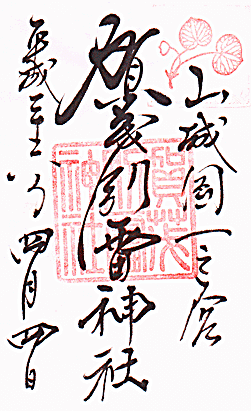 山城國一之宮
賀茂別雷神社
平成年四月四日
賀茂
別雷
神社